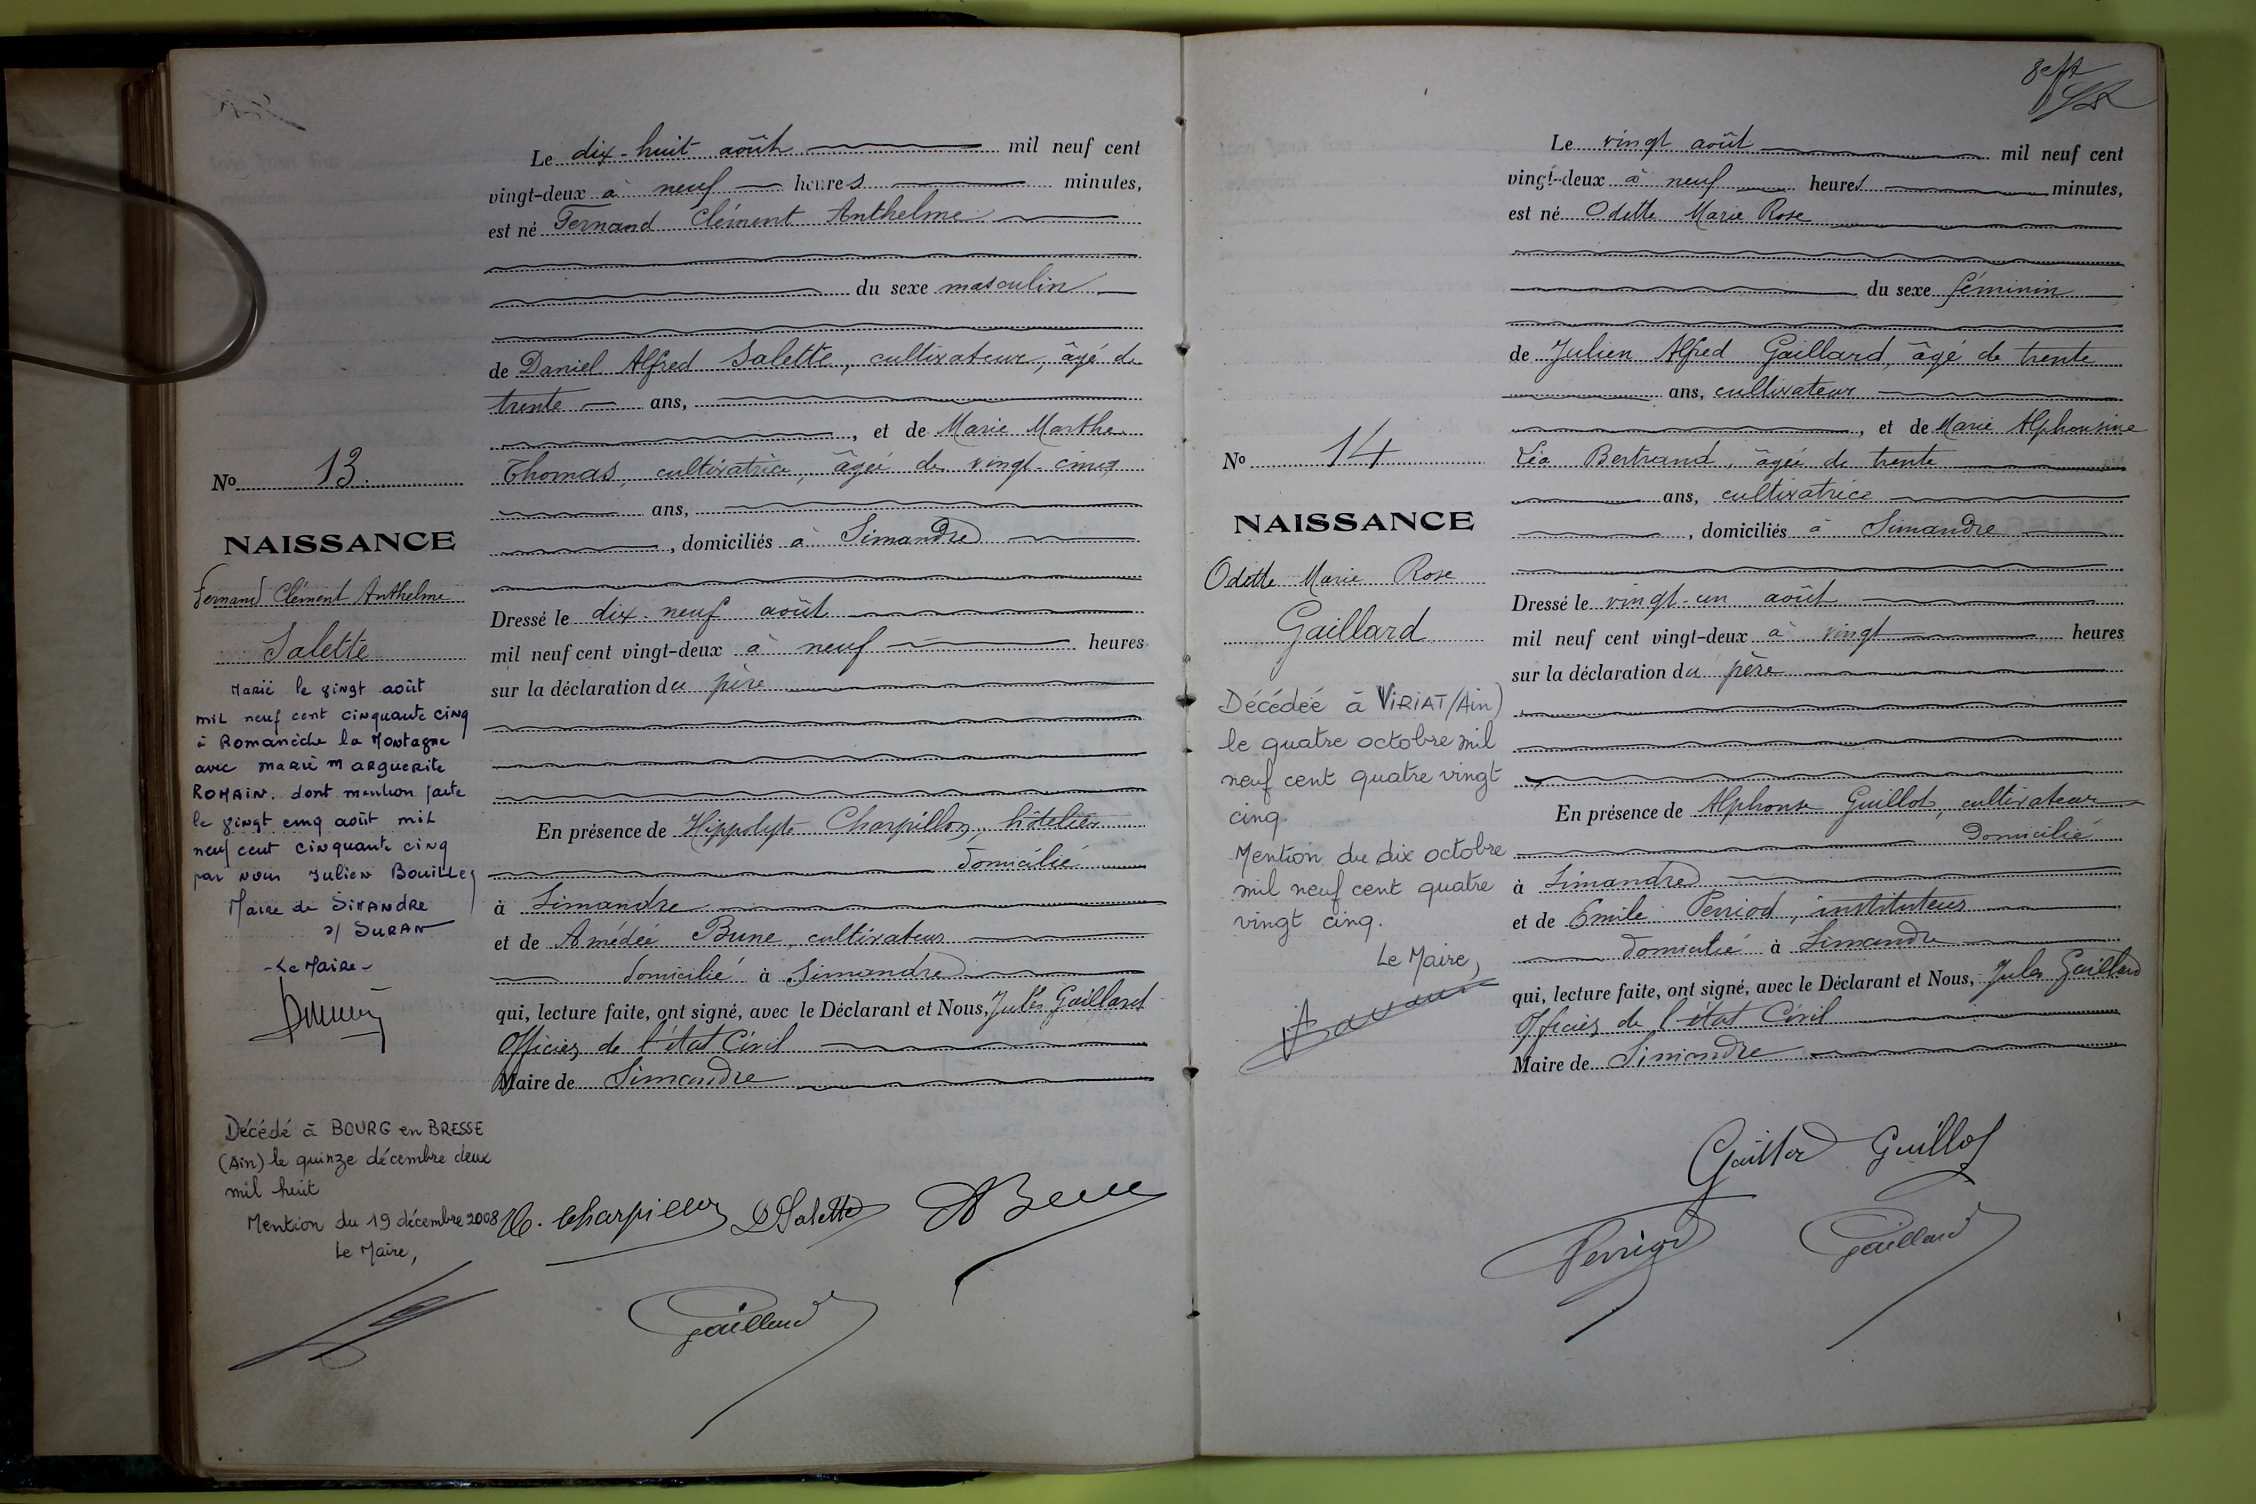 Le dix-huit août mil neuf cent
vingt-deux à neuf heures minutes,
est né Fernand Clément Anthelme
du sexe masculin
de Daniel Alfred Salette, cultivateur, âgé de
trente ans,
, et de Marie Marthe
Thomas, cultivatrice, âgée de vingt-cinq
ans,
, domiciliés à Simandre
Dressé le dix-neuf août
mil neuf cent vingt-deux à neuf heures
sur la déclaration du père
En présence de Hippolyte Charpillon, hôtelier
domicilié
à Simandre
et de Amédée Bune, cultivateur
domicilié à Simandre
qui, lecture faite, ont signé, avec le Déclarant et Nous, Jules Gaillard
Officier de l'état Civil
Maire de Simandre
No 13.
NAISSANCE
Fernand Clément Anthelme
Salette
Marié le vingt août
mil neuf cent cinquante cinq
à Romanèche la Montagne
avec Marie Marguerite
ROMAIN. dont mention faite
le vingt cinq août mil
neuf cent cinquante cinq
par nous Julien Bouillez
Maire de Simandre
s/ Suran
- Le Maire -
Décédé à BOURG en BRESSE
(Ain) le quinze décembre deux
mil huit
Mention du 19 décembre 2008
Le Maire,
H. Charpillon DSalette ABune
Gaillard
8eft
Le vingt août mil neuf cent
vingt-deux à neuf heures minutes,
est né Odette Marie Rose
du sexe féminin
de Julien Alfred Gaillard, âgé de trente
ans, cultivateur
, et de Marie Alphonsine
Léa Bertrand, âgée de trente
ans, cultivatrice
, domiciliés à Simandre
Dressé le vingt-un août
mil neuf cent vingt-deux à vingt heures
sur la déclaration du père
En présence de Alphonse Guillot, cultivateur
domicilié
à Simandre
et de Emile Perriod, instituteur
domicilié à Simandre
qui, lecture faite, ont signé, avec le Déclarant et Nous, Jules Gaillard
Officier de l'état Civil
Maire de Simandre
No 14
NAISSANCE
Odette Marie Rose
Gaillard
Décédée à VIRIAT (Ain)
le quatre octobre mil
neuf cent quatre vingt
cinq.
Mention du dix octobre
mil neuf cent quatre
vingt cinq.
Le Maire,
Gaillard Guillot
Perriod Gaillard